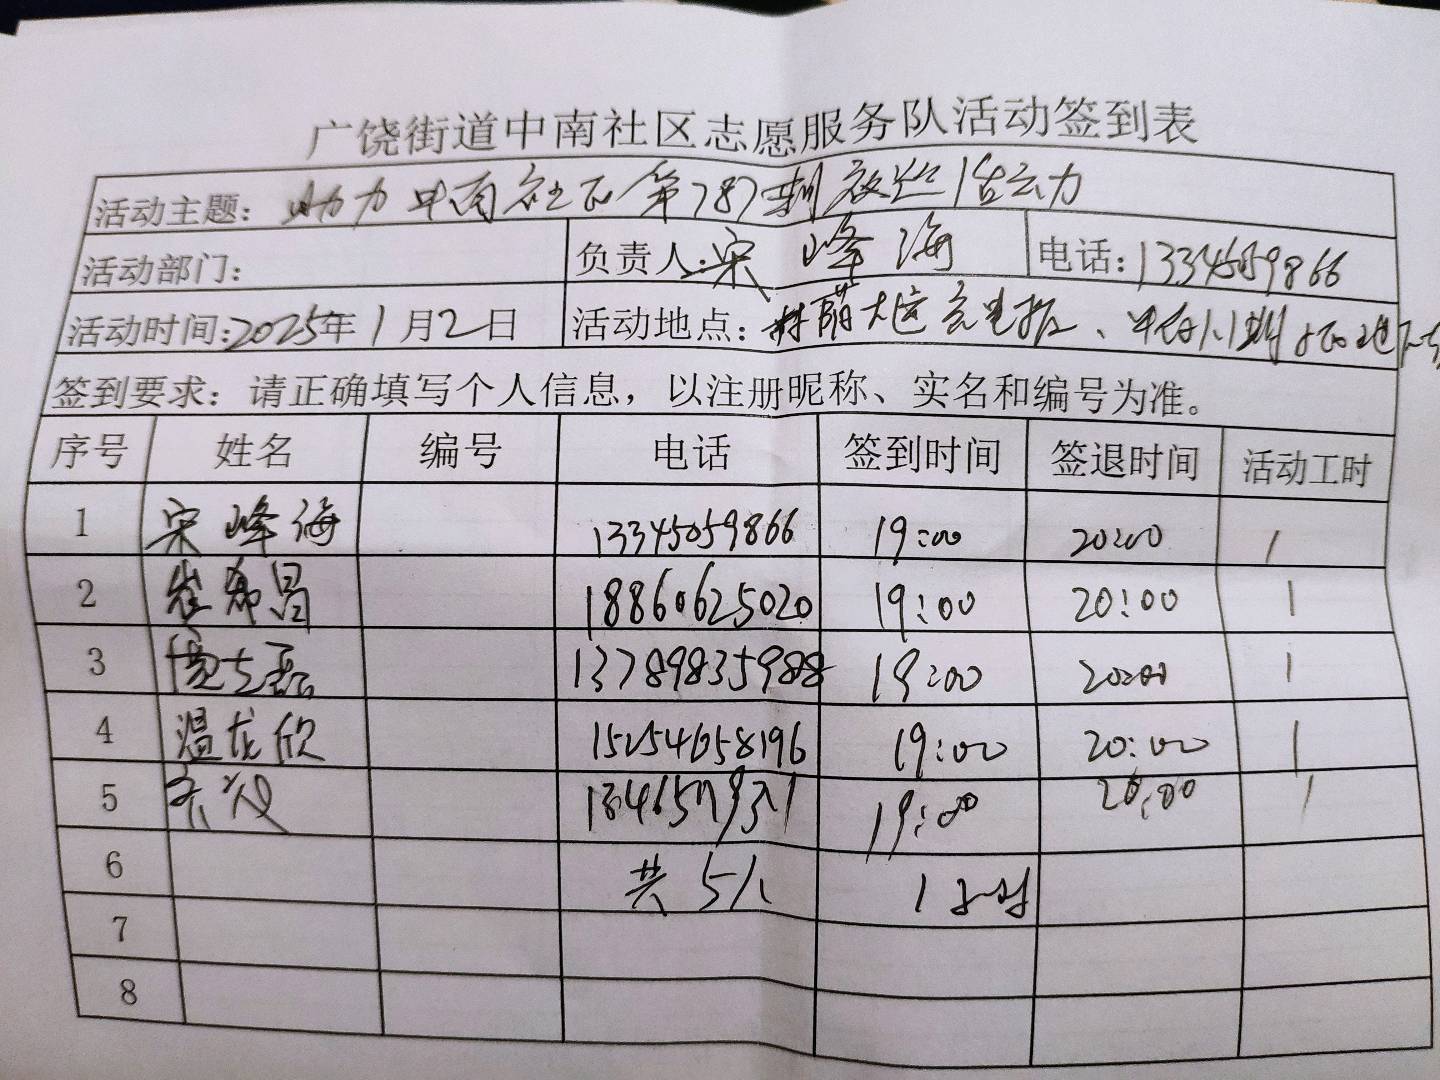 广饶街道中南社区志愿服务队活动签到表
活动主题：助力中南社区第787期放映活动
活动部门：
负责人：宋峰海
电话：13345059866
活动时间：2025年1月2日
活动地点：林荫大
签到要求：请正确填写个人信息，以注册昵称、实名和编号为准。
序号 姓名 编号 电话 签到时间 签退时间 活动工时
1 宋峰海 13345059866 19:00 20:00 1
2 昌 18860625020 19:00 20:00 1
3 磊 13789835988 19:00 20:00 1
4 温龙欣 15254658196 19:00 20:00 1
5 19:00 20:00 1
6 共5人 1小时
7
8